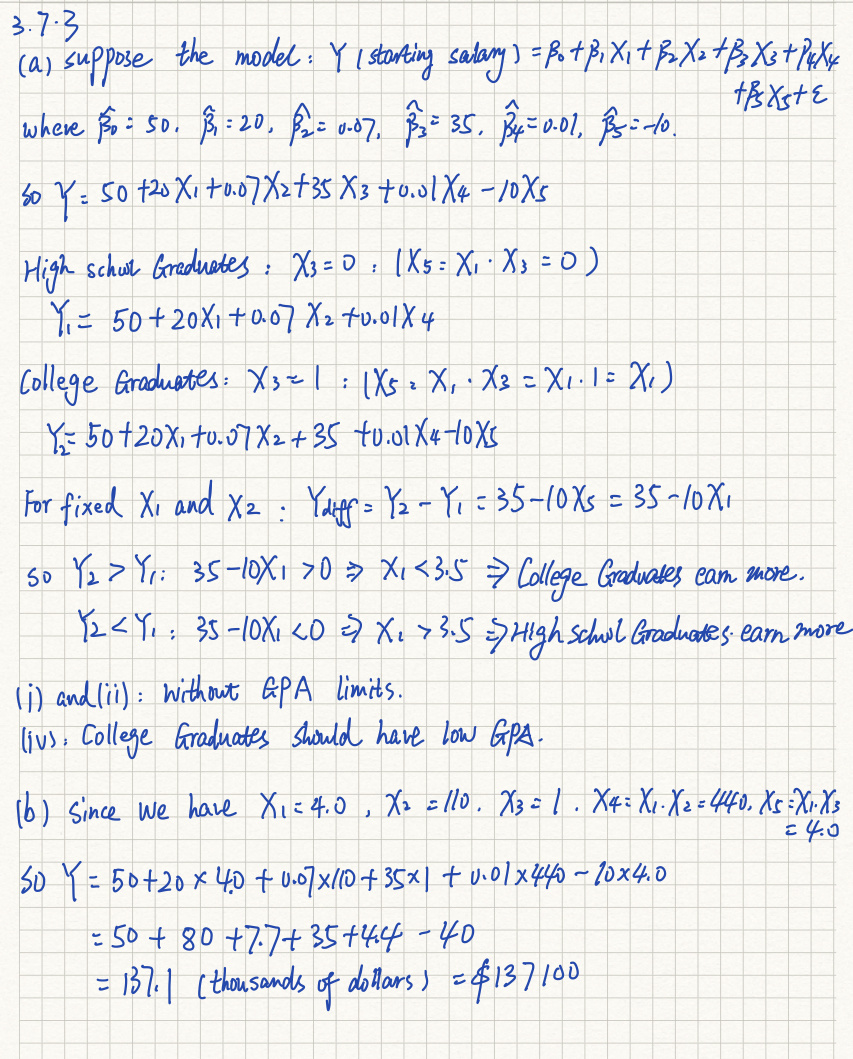 3.7.3
(a) suppose the model: Y (starting salary) = β₀ + β₁X₁ + β₂X₂ + β₃X₃ + β₄X₄
+ β₅X₅ + ε
where β̂₀ = 50, β̂₁ = 20, β̂₂ = 0.07, β̂₃ = 35, β̂₄ = 0.01, β̂₅ = -10.
so Y = 50 + 20X₁ + 0.07X₂ + 35X₃ + 0.01X₄ - 10X₅
High school Graduates: X₃ = 0 : (X₅ = X₁ · X₃ = 0)
Y₁ = 50 + 20X₁ + 0.07X₂ + 0.01X₄
College Graduates: X₃ = 1 : (X₅ = X₁ · X₃ = X₁ · 1 = X₁)
Y₂ = 50 + 20X₁ + 0.07X₂ + 35 + 0.01X₄ - 10X₅
For fixed X₁ and X₂ : Ydiff = Y₂ - Y₁ = 35 - 10X₅ = 35 - 10X₁
so Y₂ > Y₁: 35 - 10X₁ > 0 ⇒ X₁ < 3.5 ⇒ College Graduates earn more.
Y₂ < Y₁: 35 - 10X₁ < 0 ⇒ X₁ > 3.5 ⇒ High school Graduates earn more
(i) and (ii): without GPA limits.
(iv): College Graduates should have low GPA.
(b) Since we have X₁ = 4.0, X₂ = 110. X₃ = 1. X₄ = X₁·X₂ = 440, X₅ = X₁·X₃
= 4.0
So Y = 50 + 20 × 4.0 + 0.07 × 110 + 35 × 1 + 0.01 × 440 - 10 × 4.0
= 50 + 80 + 7.7 + 35 + 4.4 - 40
= 137.1 (thousands of dollars) = $137100